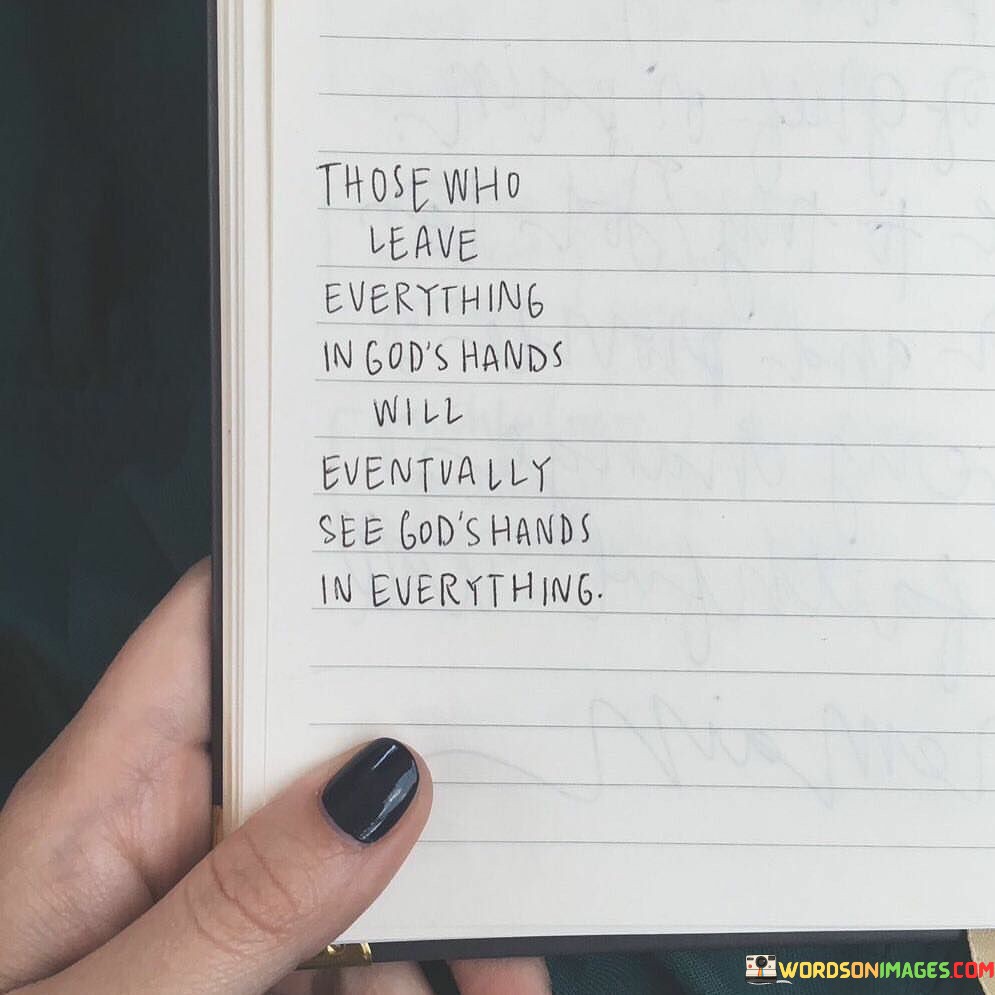 THOSE WHO
LEAVE
EVERYTHING
IN GOD'S HANDS
WILL
EVENTUALLY
SEE GOD'S HANDS
IN EVERYTHING.
WORDSONIMAGES.COM